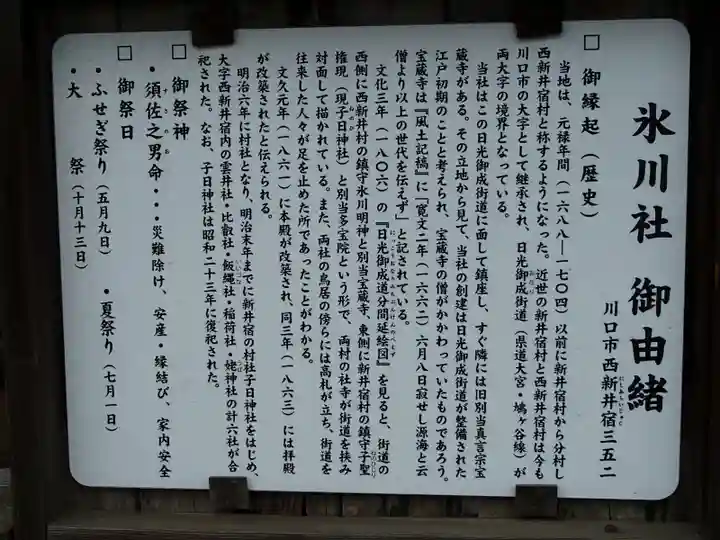 氷川社 御由緒
川口市西新井宿三五二
にしあらいじゅく
□ 御縁起(歴史)
当地は、元禄年間(一六八八―一七〇四)以前に新井宿村から分村し
西新井宿村と称するようになった。近世の新井宿村と西新井宿村は今も
川口市の大字として継承され、日光御成街道(県道大宮・鳩ヶ谷線)が
両大字の境界となっている。
当社はこの日光御成街道に面して鎮座し、すぐ隣には旧別当真言宗宝
蔵寺がある。その立地から見て、当社の創建は日光御成街道が整備された
江戸初期のことと考えられ、宝蔵寺の僧がかかわっていたものであろう。
宝蔵寺は『風土記稿』に「寛文二年(一六六二)六月八日寂せし源海と云
僧より以上の世代を伝えず」と記されている。
文化三年(一八〇六)の『日光御成道分間延絵図』を見ると、街道の
西側に西新井村の鎮守氷川明神と別当宝蔵寺、東側に新井宿村の鎮守子聖
権現(現子日神社)と別当多宝院という形で、両村の社寺が街道を挟み
対面して描かれている。また、両社の鳥居の傍らには高札が立ち、街道を
往来した人々が足を止めた所であったことがわかる。
文久元年(一八六一)に本殿が改築され、同三年(一八六三)には拝殿
が改築されたと伝えられる。
明治六年に村社となり、明治末年までに新井宿の村社子日神社をはじめ、
大字西新井宿内の雲井社・比叡社・飯縄社・稲荷社・姥神社の計六社が合
祀された。なお、子日神社は昭和二十三年に復祀された。
□ 御祭神
・須佐之男命・・・災難除け、安産・縁結び、家内安全
□ 御祭日
・ふせぎ祭り(五月九日) ・夏祭り(七月一日)
・大 祭(十月十三日)